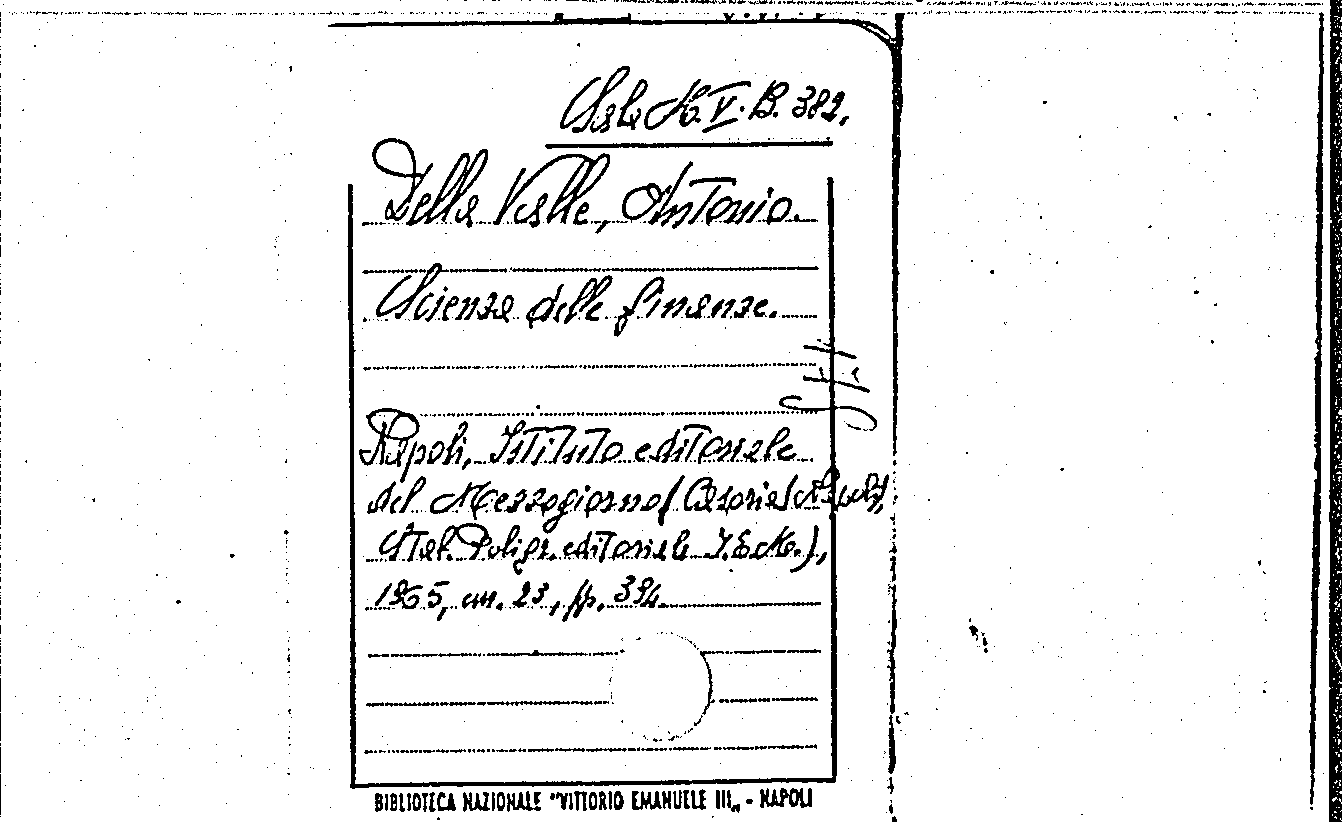 Sala H. V. B. 382.
Della Valle, Antonio.
Scienza delle finanze.
Napoli, Istituto editoriale
del Mezzogiorno (Casoria (Napoli),
Stab. Poligr. editoriale I.E.M.),
1965, cm. 23, pp. 394.
BIBLIOTECA NAZIONALE "VITTORIO EMANUELE III„ - NAPOLI